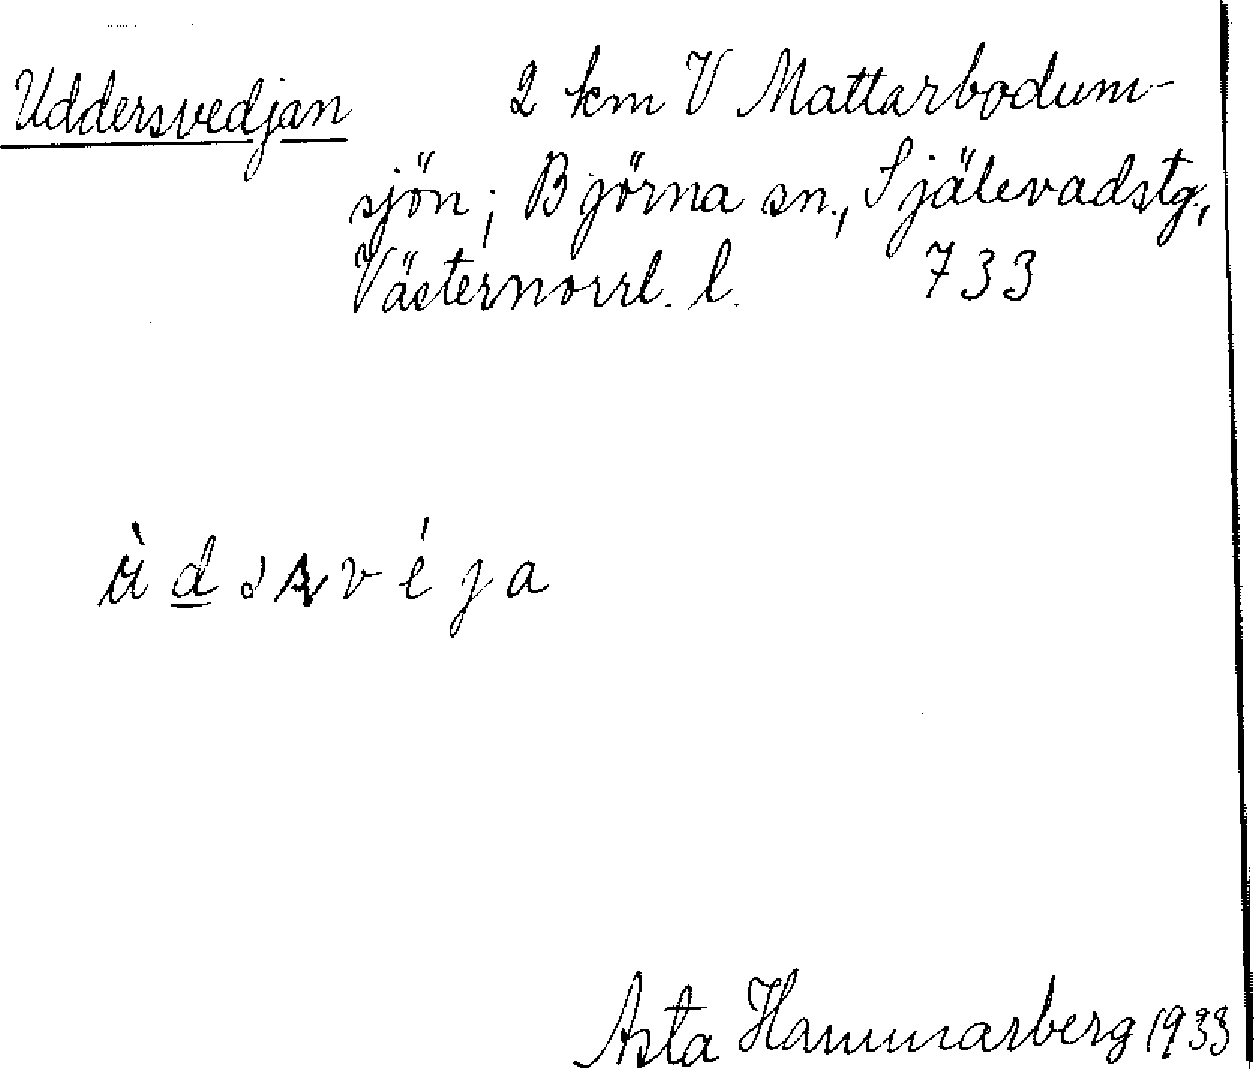 Uddersvedjan 2 km V Mattarbodum-
sjön; Björna sn., Själevadstg.,
Västernorrl. l. 733
Asta Hammarberg 1933